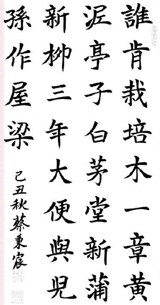 誰肯栽培木一章黃
泥亭子白茅堂新蒲
新柳三年大便與兒
孫作屋梁
己丑秋蔡東宸